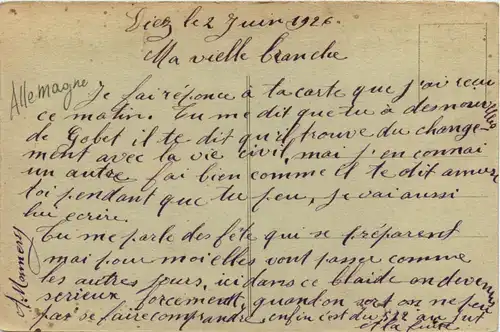 Diez le 2 Juin 1926.
Ma vielle branche
Allemagne
Je fai réponce à ta carte que j'ai reçu
ce matin. Tu me dit que tu à des nouvelles
de Gobet il te dit qu'il trouve du change-
ment avec la vie civil, mai j'en connai
un autre fai bien comme il te dit amuse
toi pendant que tu peu, je vai aussi
lui ecrire.
Tu me parle des fête qui se préparent
mai pour moi elles vont passer comme
les autres jours, ici dans ce blaide on devien
serieux forcement, quand on sort on ne peu
pas se faire comprendre, enfin c'est du 522 au jut
et la fuite